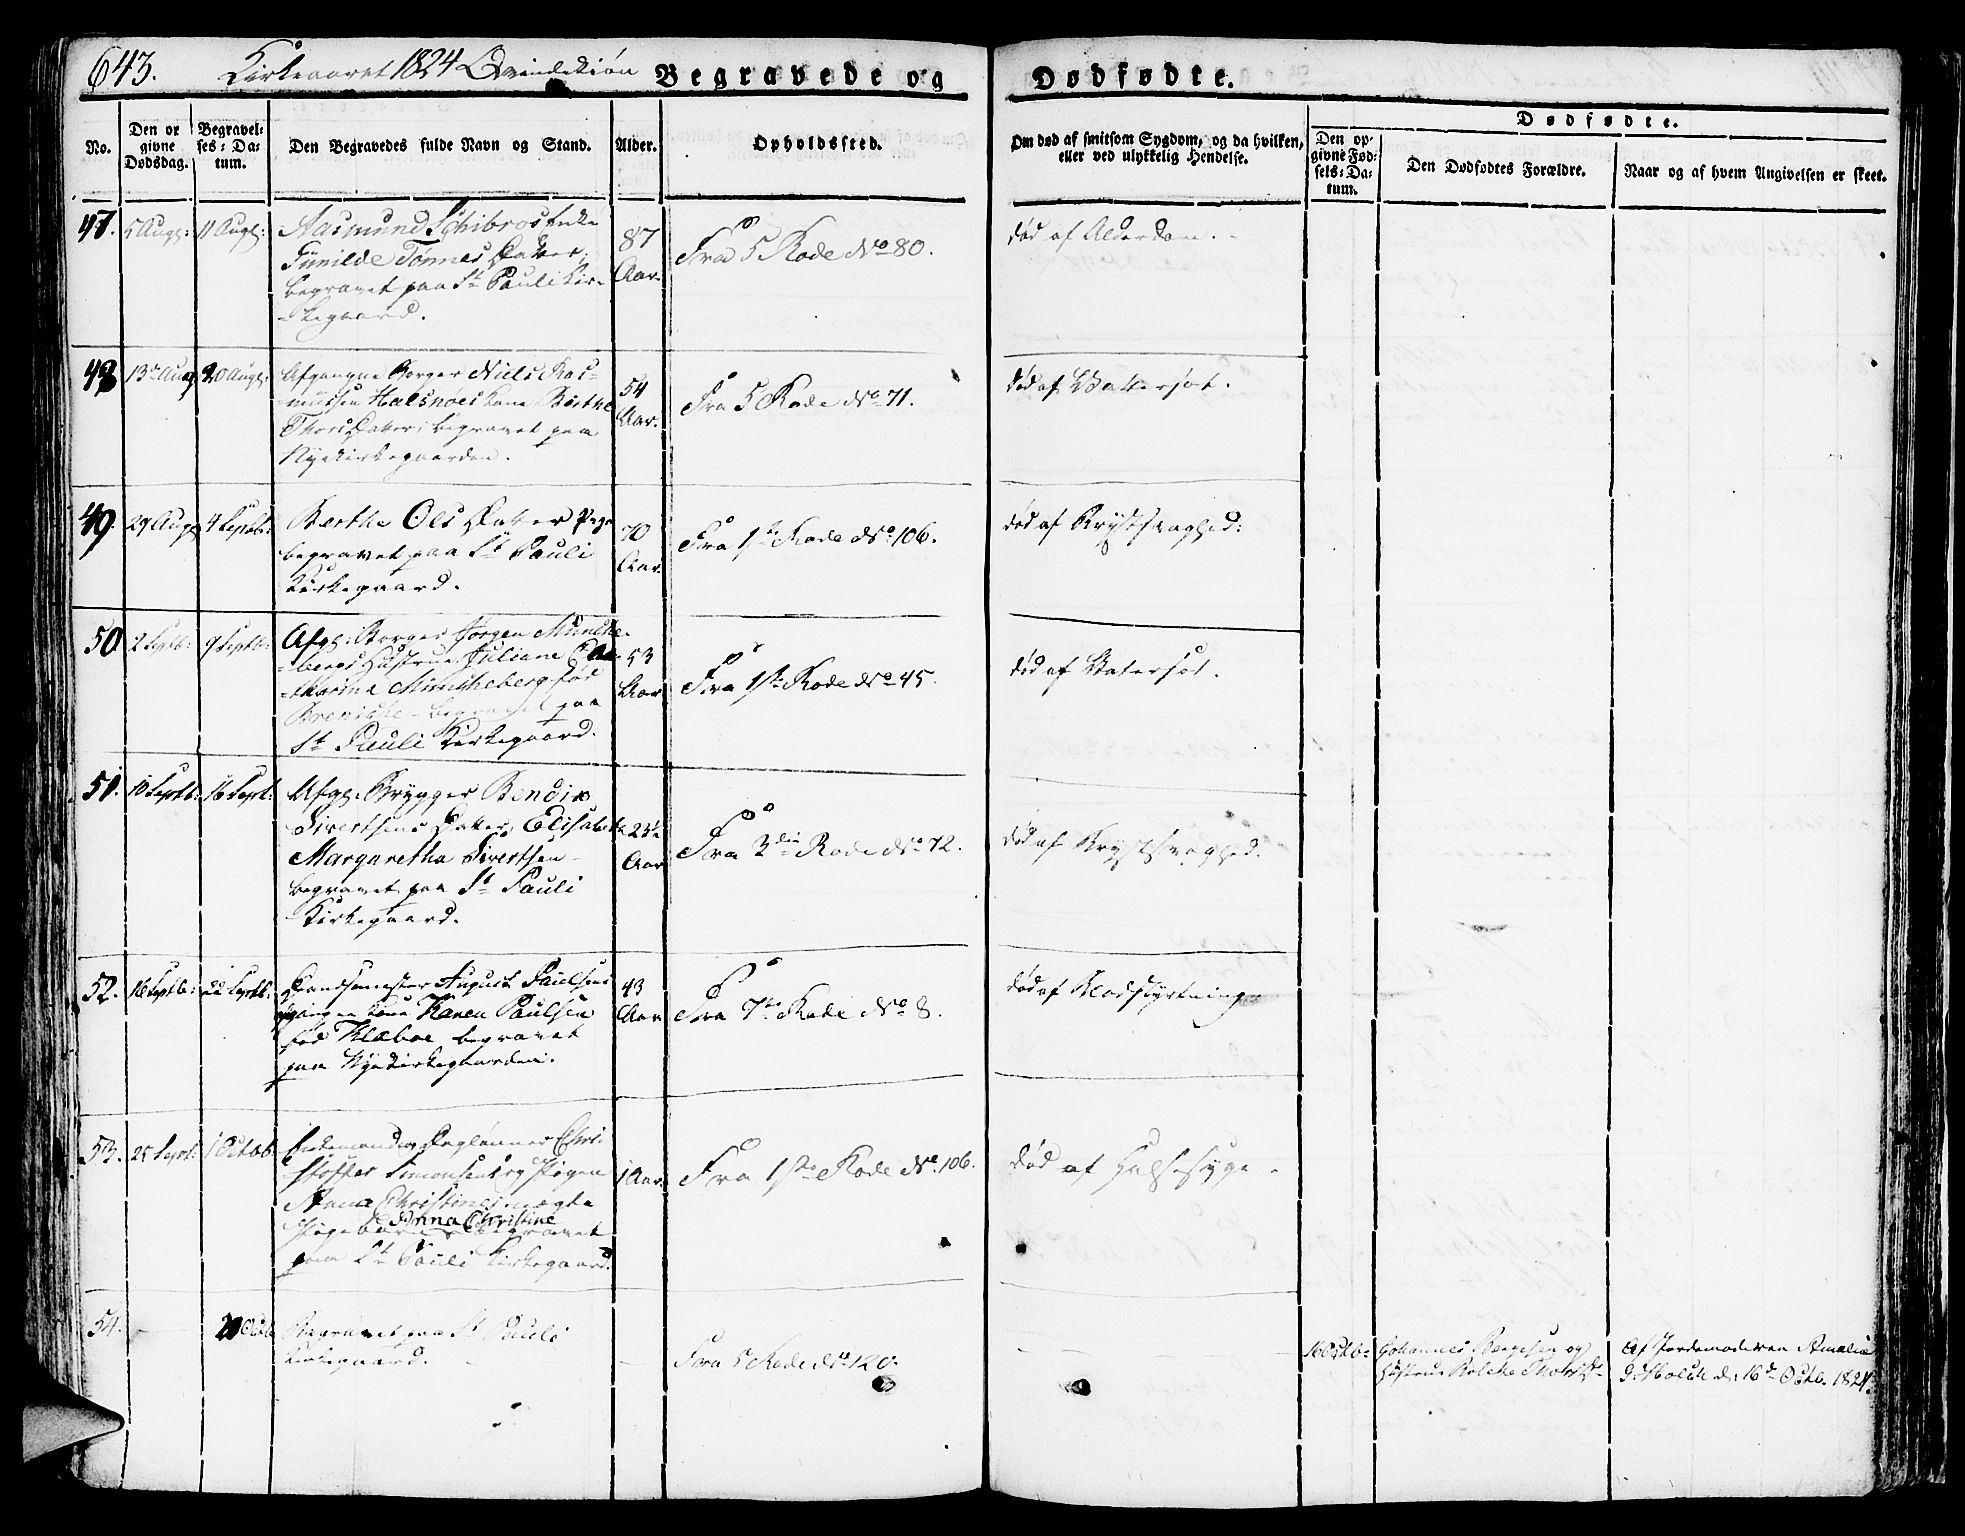 643. Kirkeaaret 1824 Qvindekiøn Begravede og Dødfødte.
No.
Den op
givne
Dødsdag.
Begravel-
ses-Da-
tum.
Den Begravedes fulde Navn og Stand.
Alder.
Opholdssted.
Om død af smitsom Sygdom, og da hvilken,
eller ved ulykkelig Hendelse.
Dødfødte.
Den op-
givne Fød-
sels-Da-
tum.
Den Dødfødtes Forældre.
Naar og af hvem Angivelsen er skeet.
47. 5 Aug: 11 Aug:
Aasmund Schibros Enke
Gunilde Tønnes Datter,
begravet paa St Pauli Kir-
kegaard.
87
Aar.
Fra 5 Rode No 80.
død af Alderdom.
48 13de Aug 20 Aug:
Afgangne Borger Niels Ras-
mussen Halsnoes Kone Berthe
Thors Datter; begravet paa
Nyekirkegaarden.
54
Aar.
Fra 5 Rode No 71.
død af Vattersot.
49. 29 Aug 4 Septb:
Berthe Ols Datter Pige
begravet paa St Pauli
Kirkegaard.
70
Aar.
Fra 1ste Rode No 106.
død af Brystsvaghed:
50 2 Septb: 9 Septb:
Afg: Borger Jørgen Münche-
bergs Hustrue Juliane Ca-
tharina Müncheberg fød
begravet paa
St Pauli Kirkegaard.
53
Aar
Fra 1ste Rode No 45.
død af Vatersot.
51. 10 Septb: 16 Sept:
Afg: Brygger Bendix
Sivertsens Datter, Elisabeth
Margaretha Sivertsen
begravet paa St Pauli
Kirkegaard.
23½
Aar
Fra 2den Rode No 72.
død af Brystsvaghed.
52. 16 Septb: 22 Septb:
August Paulsens
Kone Karen Paulsen
fød Klæboe, begravet
paa Nyekirkegaarden.
43
Aar
Fra 7de Rode No 8.
død af Blodstyrtning
53. 25 Sept: 1 Octob:
Enkemand og Dagleiner Chri
stoffer Simonsen og Pigen
Anna Christines uægte
Pigebarn Anna Christine begravet
paa St Pauli Kirkegaard.
1 Aar.
Fra 1ste Rode No. 106.
død af Halssyge.
54. 20 Octb
Begravet paa St Pauli
Kirkegaard.
Fra 5 Rode No 120.
16 Octb:
Johannes Børgesen og
Hustrue
Af Jordemoderen Amalia
d. 16de Octb. 1824.